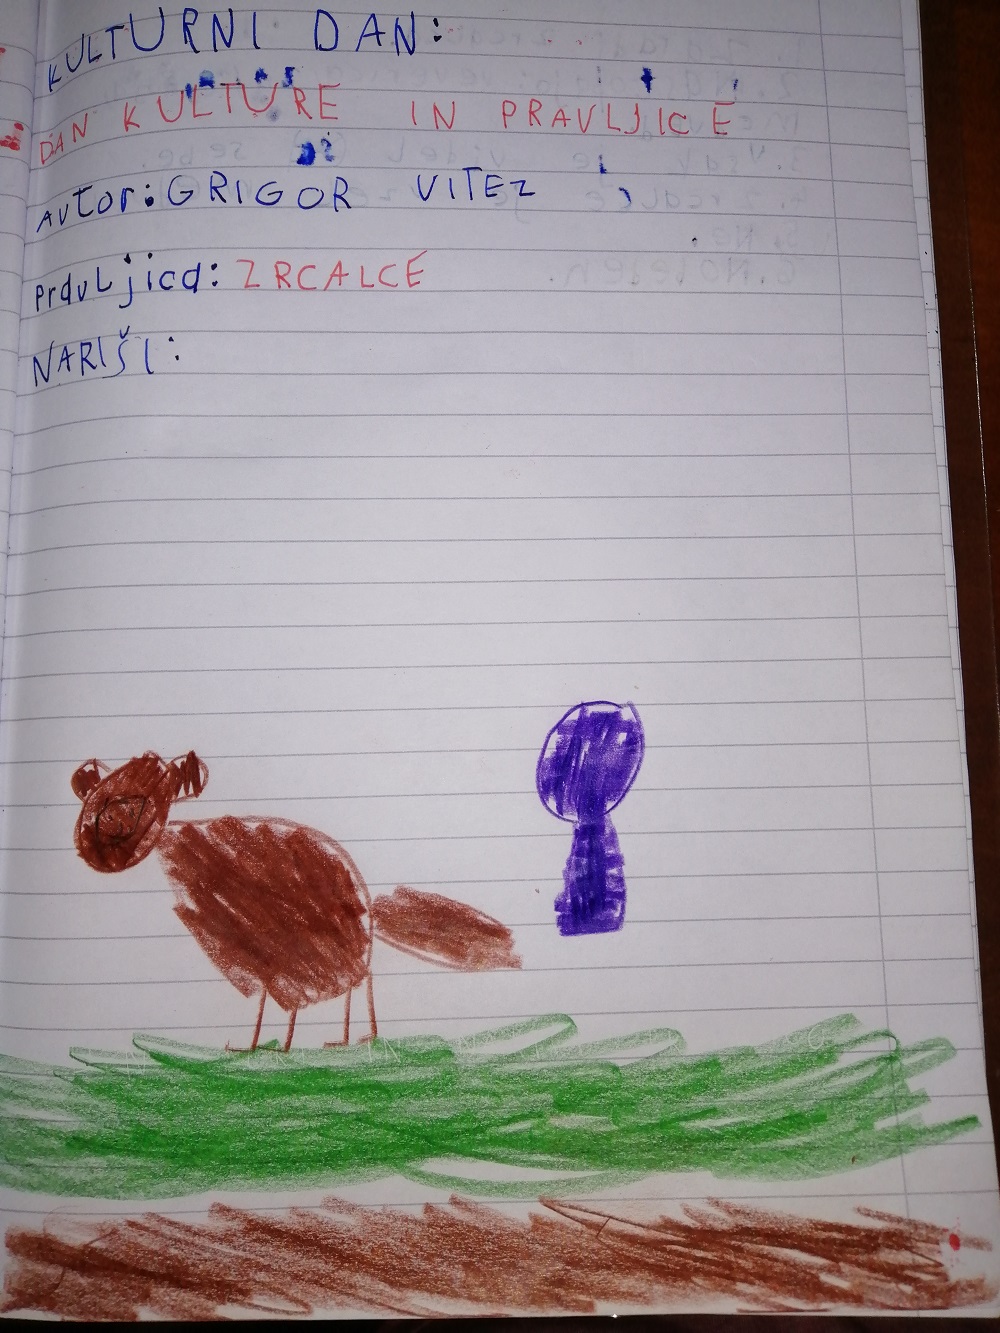 KULTURNI DAN:
DAN KULTURE IN PRAVLJICE
AvTor: GRIGOR VITEZ
PrduLjicd: ZRCALCE
NARIŠI: